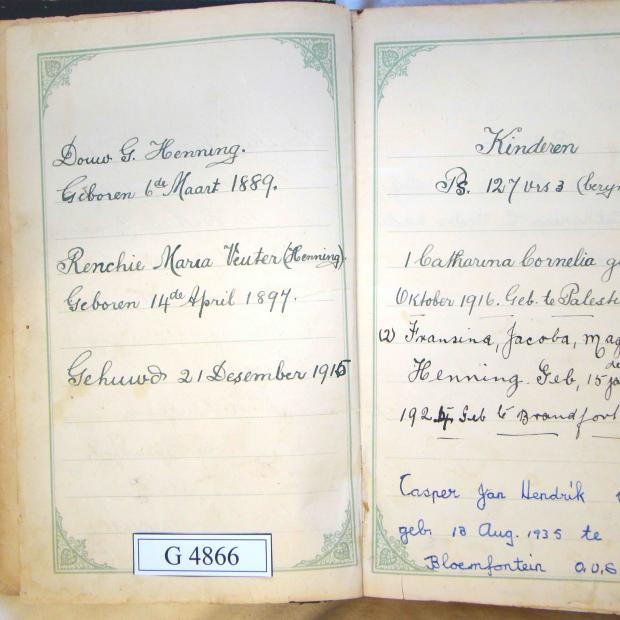 Douw G. Henning.
Geboren 6de Maart 1889.
Renchie Maria Venter (Henning)
Geboren 14de April 1897.
Gehuwd 21 Desember 1915
G 4866
Kinderen
Ps. 127 vrs 3 (bery
1 Catharina Cornelia g
Oktober 1916. Geb. te Palest
(2) Fransina, Jacoba, Mag
Henning. Geb, 15de Ja
1924 Geb te Brandfort
Casper Jan Hendrik
geb. 18 Aug. 1935 te
Bloemfontein O.V.S